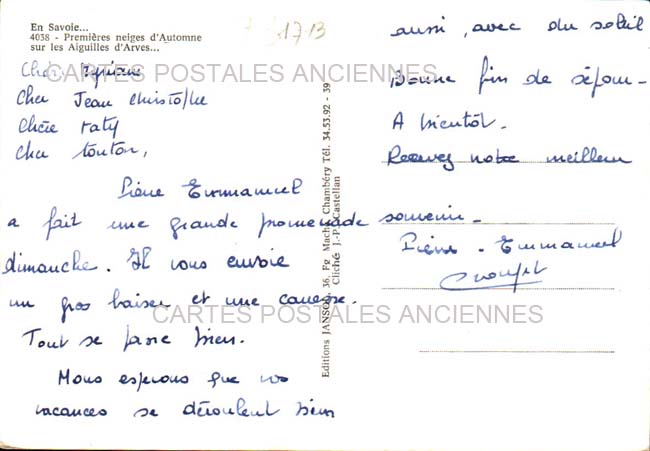 En Savoie...
4038 - Premières neiges d'Automne
sur les Aiguilles d'Arves...
1713
CARTES POSTALES ANCIENNES
Chère Myriam
Cher Jean Christophe
Chère Katy
Cher tonton,
Pierre Emmanuel
a fait une grande promenade
dimanche. Il vous envoie
un gros baiser et une caresse.
Tout se passe bien.
Nous espérons que vos
vacances se déroulent bien
CARTES POSTALES ANCIENNES
Editions JANSOL, 36, Fg Maché, Chambéry Tél. 34.53.92 - 39
Cliché J.-P. Castellan
aussi, avec du soleil
Bonne fin de séjour -
A bientôt.
Recevez notre meilleur
souvenir -
Pierre - Emmanuel